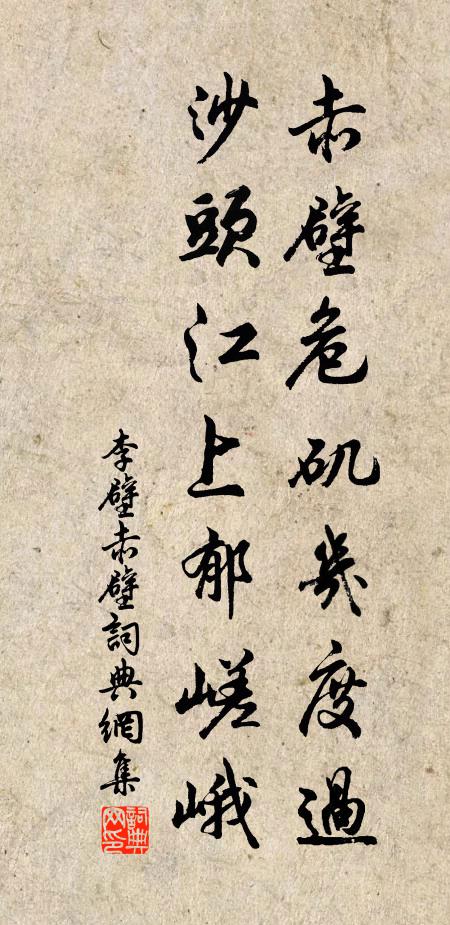 赤壁危矶幾度過
沙頭江上郁嵯峨
李壁赤壁詞典網集
詞典網印